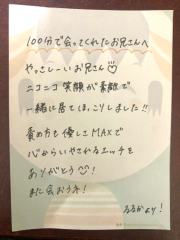 100分で会ってくれたお兄さんへ
やっさしーいお兄さん
ニコニコ笑顔が素敵で
一緒に居てほっこりしました!!
責め方も優しさMAXで
心からいやされるエッチを
ありがとう!
また会おうネ!
るるかより!